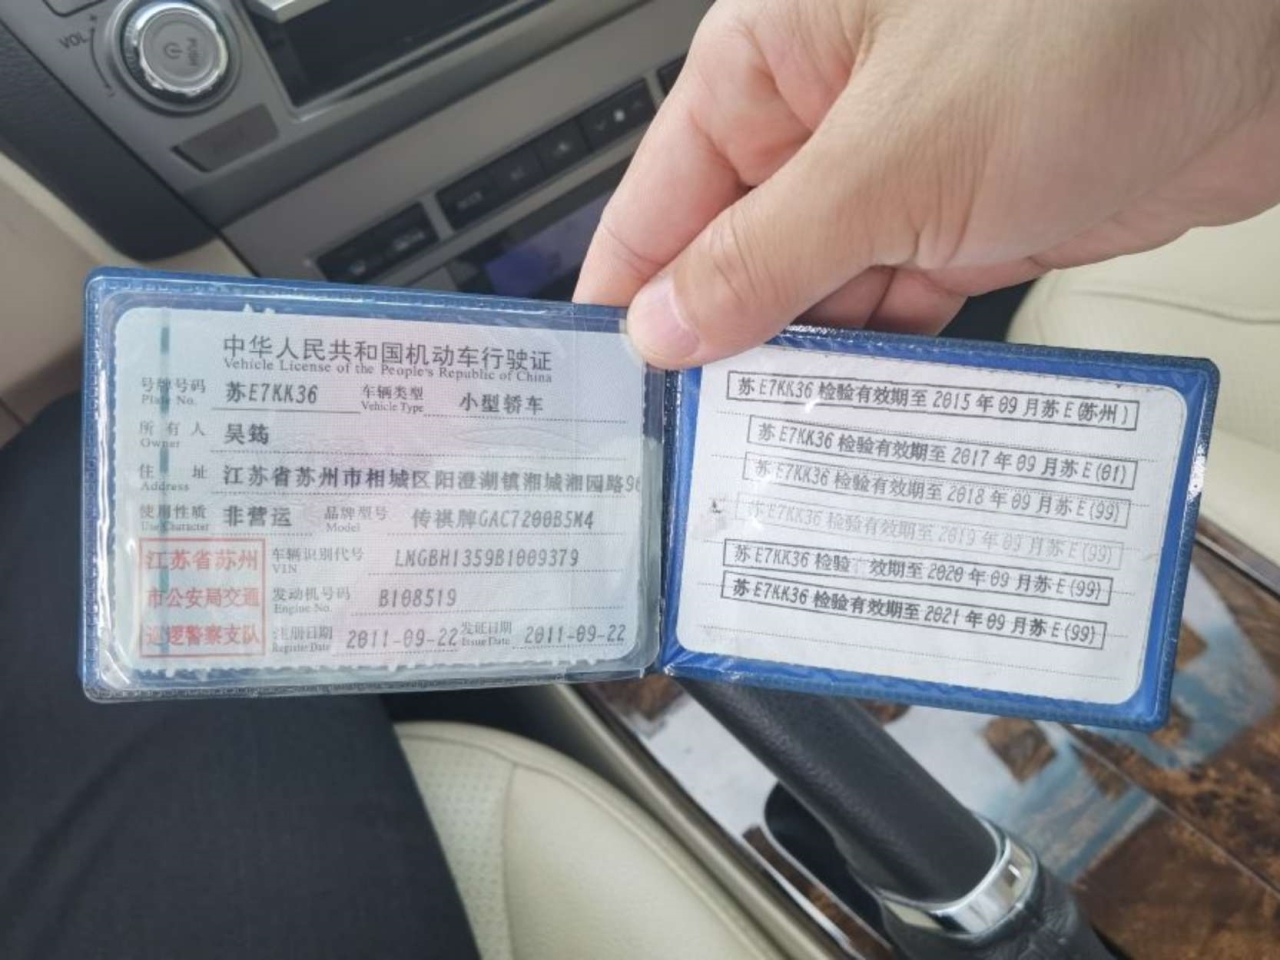 VOL
PUSH
中华人民共和国机动车行驶证
Vehicle License of the People's Republic of China
号牌号码 苏E7KK36 车辆类型 小型轿车
Plate No. Vehicle Type
所有人 吴筠
Owner
住址 江苏省苏州市相城区阳澄湖镇湘城湘园路
Address
使用性质 非营运 品牌型号 传祺牌GAC7200B5M4
Use Character Model
江苏省苏州
市公安局交通
巡逻警察支队
车辆识别代号 LMGBH1359B1009379
VIN
发动机号码 B108519
Engine No.
注册日期 2011-09-22 发证日期 2011-09-22
Register Date Issue Date
苏E7KK36 检验有效期至 2015年09月苏E(苏州)
苏E7KK36 检验有效期至 2017年09月苏E(01)
苏E7KK36 检验有效期至 2018年09月苏E(99)
苏E7KK36 检验有效期至 2019年09月苏E(99)
苏E7KK36 检验 效期至 2020年09月苏E(99)
苏E7KK36 检验有效期至 2021年09月苏E(99)